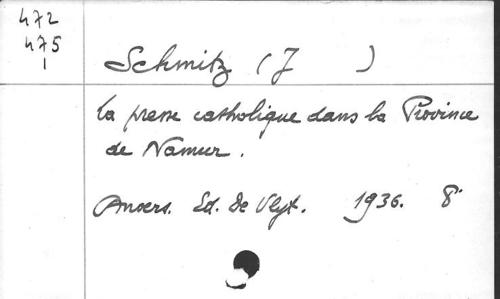 472
475
1
Schmitz (J )
la presse catholique dans la Province
de Namur.
Anvers. Ed. De Vlyt. 1936. 8°